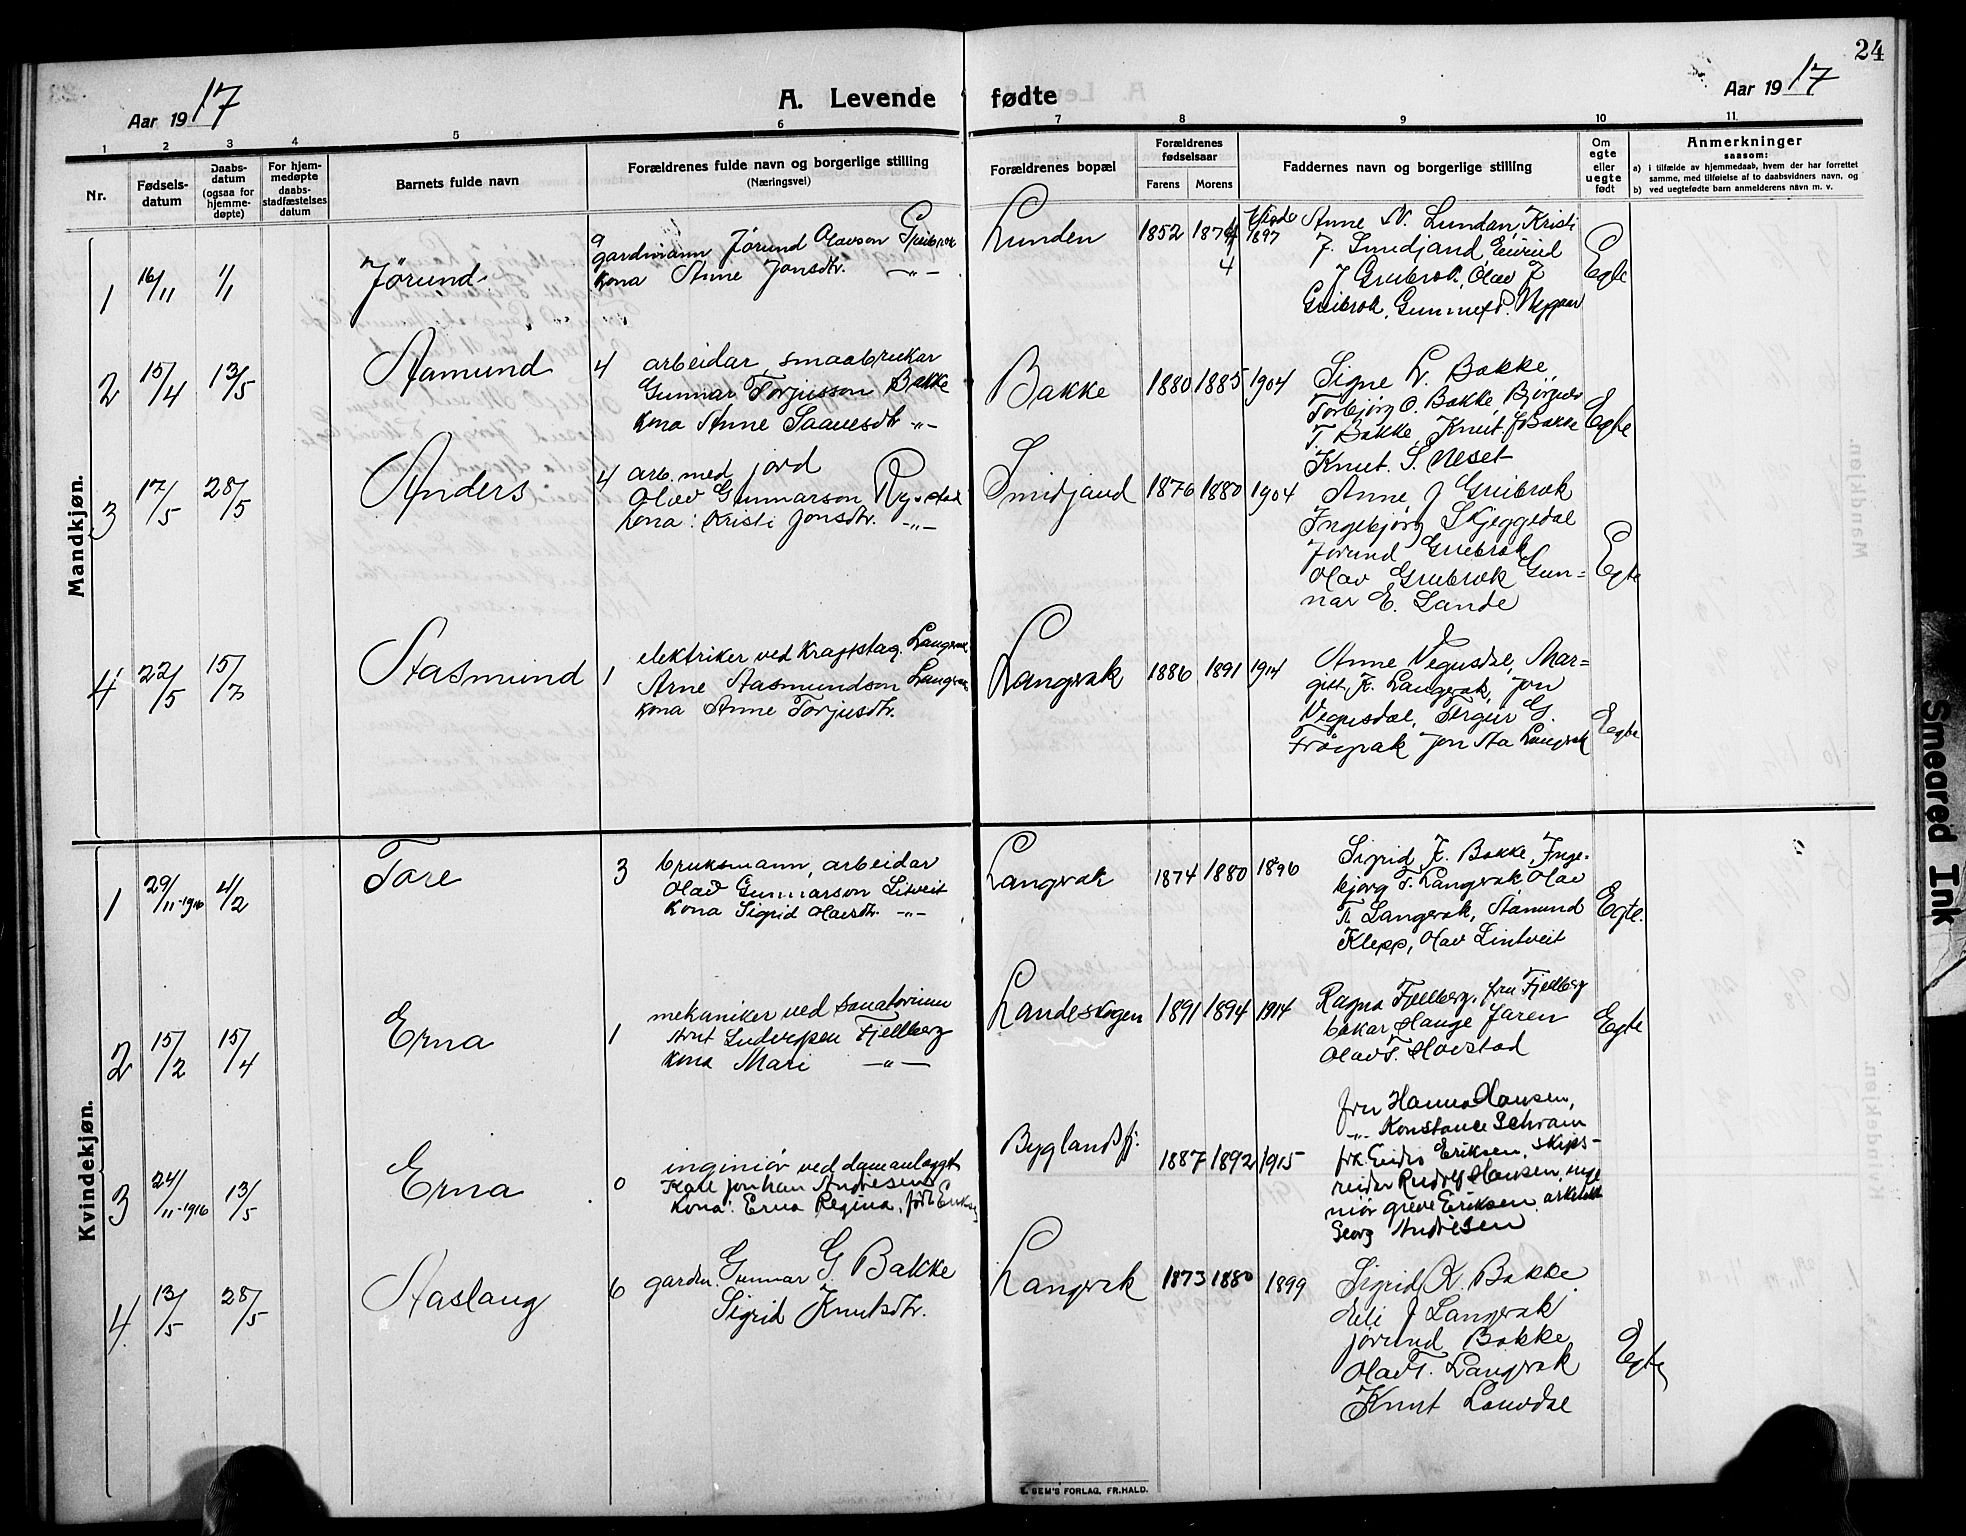 24
Aar 1917
A. Levende fødte
Aar 1917
1 2 3 4 5 6 7 8 9 10 11
Nr.
Fødsels-
datum
Daabs-
datum
(ogsaa for
hjemme-
døpte)
For hjem-
medøpte
daabs-
stadfæstelses
datum
Barnets fulde navn
Forældrenes fulde navn og borgerlige stilling
(Næringsvei)
Forældrenes bopæl
Forældrenes
fødselsaar
Farens Morens
Faddernes navn og borgerlige stilling
Om
egte
eller
uegte
født
Anmerkninger
saasom:
a) i tilfælde av hjemmedaab, hvem der har forrettet
samme, med tilføielse af to daabsvidners navn, og
b) ved uegtefødte barn anmelderens navn m. v.
Mandkjøn.
1 16/11 1/1 Jørund
9 gardmann Jørund Olavson Greibrok
kona Anne Jonsdtr. -"-
Lunden 1852 1874 1897
4
Anne N. Lunden, Kristi
J. Smidjand, Eivind
J Greibrok, Olav J
Greibrok, Gunnulf
Egte
2 15/4 13/5 Aamund
4 arbeidar, smaabrukar
Gunnar Torjusson Bakke
kona Anne Saavesdtr -"-
Bakke 1880 1885 1904
Signe L. Bakke,
Torbjørg O. Bakke, Bjørgulv
T. Bakke, Knut J Bakke
Knut. S. Neset
Egte
3 17/5 28/5 Anders
4 arb. med jord
Olav Gunnarson Rysstad
kona: Kristi Jonsdtr. -"-
Smidjand 1876 1880 1904
Anne J Greibrok
Ingebjørg Skjeggedal
Jørund Greibrok
Olav Greibrok Gun=
nar E. Lande
Egte
4 22/5 15/7 Aasmund
1 elektriker ved kraftstag. Langerak
Arne Aasmundson Langerak
kona Anne Torjusdtr.
Langerak 1886 1891 1914
Anne Vegusdal, Mar=
gitt K. Langerak, Jon
Vegusdal, Tergus G.
Frøyrak Jon Aa Langerak
Egte
Kvindekjøn.
1 29/11-1916 4/2 Tore
3 bruksmann, arbeidar
Olav Gunnarson Litveit
kona Sigrid Olavsdtr. -"-
Langerak 1874 1880 1896
Sigrid K. Bakke, Inge-
bjørg T. Langerak, Olav
T. Langerak, Aamund
Klepp, Olav Lintveit
Egte.
2 15/2 15/4 Erna
1 mekaniker ved Sanatorium
Arnt Ludvigsen Fjellberg
kona Mari -"-
Landeskogen 1891 1894 1914
Ragna Fjellberg, fru Fjellberg
bakar Hauge Jaren
Olav T. Hovstad
Egte
3 24/11-1916 13/5 Erna
0 ingeniør ved damanlægget
Karl Jonhan Andresen
Kona: Erna Regina, født Eriksen
Byglandsfj. 1887 1892 1915
fru Hanna Hansen,
-"- Konstance Schram
frk. Eriksen, skips-
reider Rudolf Hansen, inge
niør greve Eriksen, arkitekt
Georg Andresen
4. 13/5 28/5 Aaslaug
6 gardm. Gunnar G Bakke
Sigrid Knutsdtr.
Langerak 1873 1880 1899
Sigrid K. Bakke.
Eli J Langerak
Jørund Bakke
Olav T. Langerak
Knut Lauvdal
Egte
E. SEM'S FORLAG, FR.HALD.
Smeared Ink